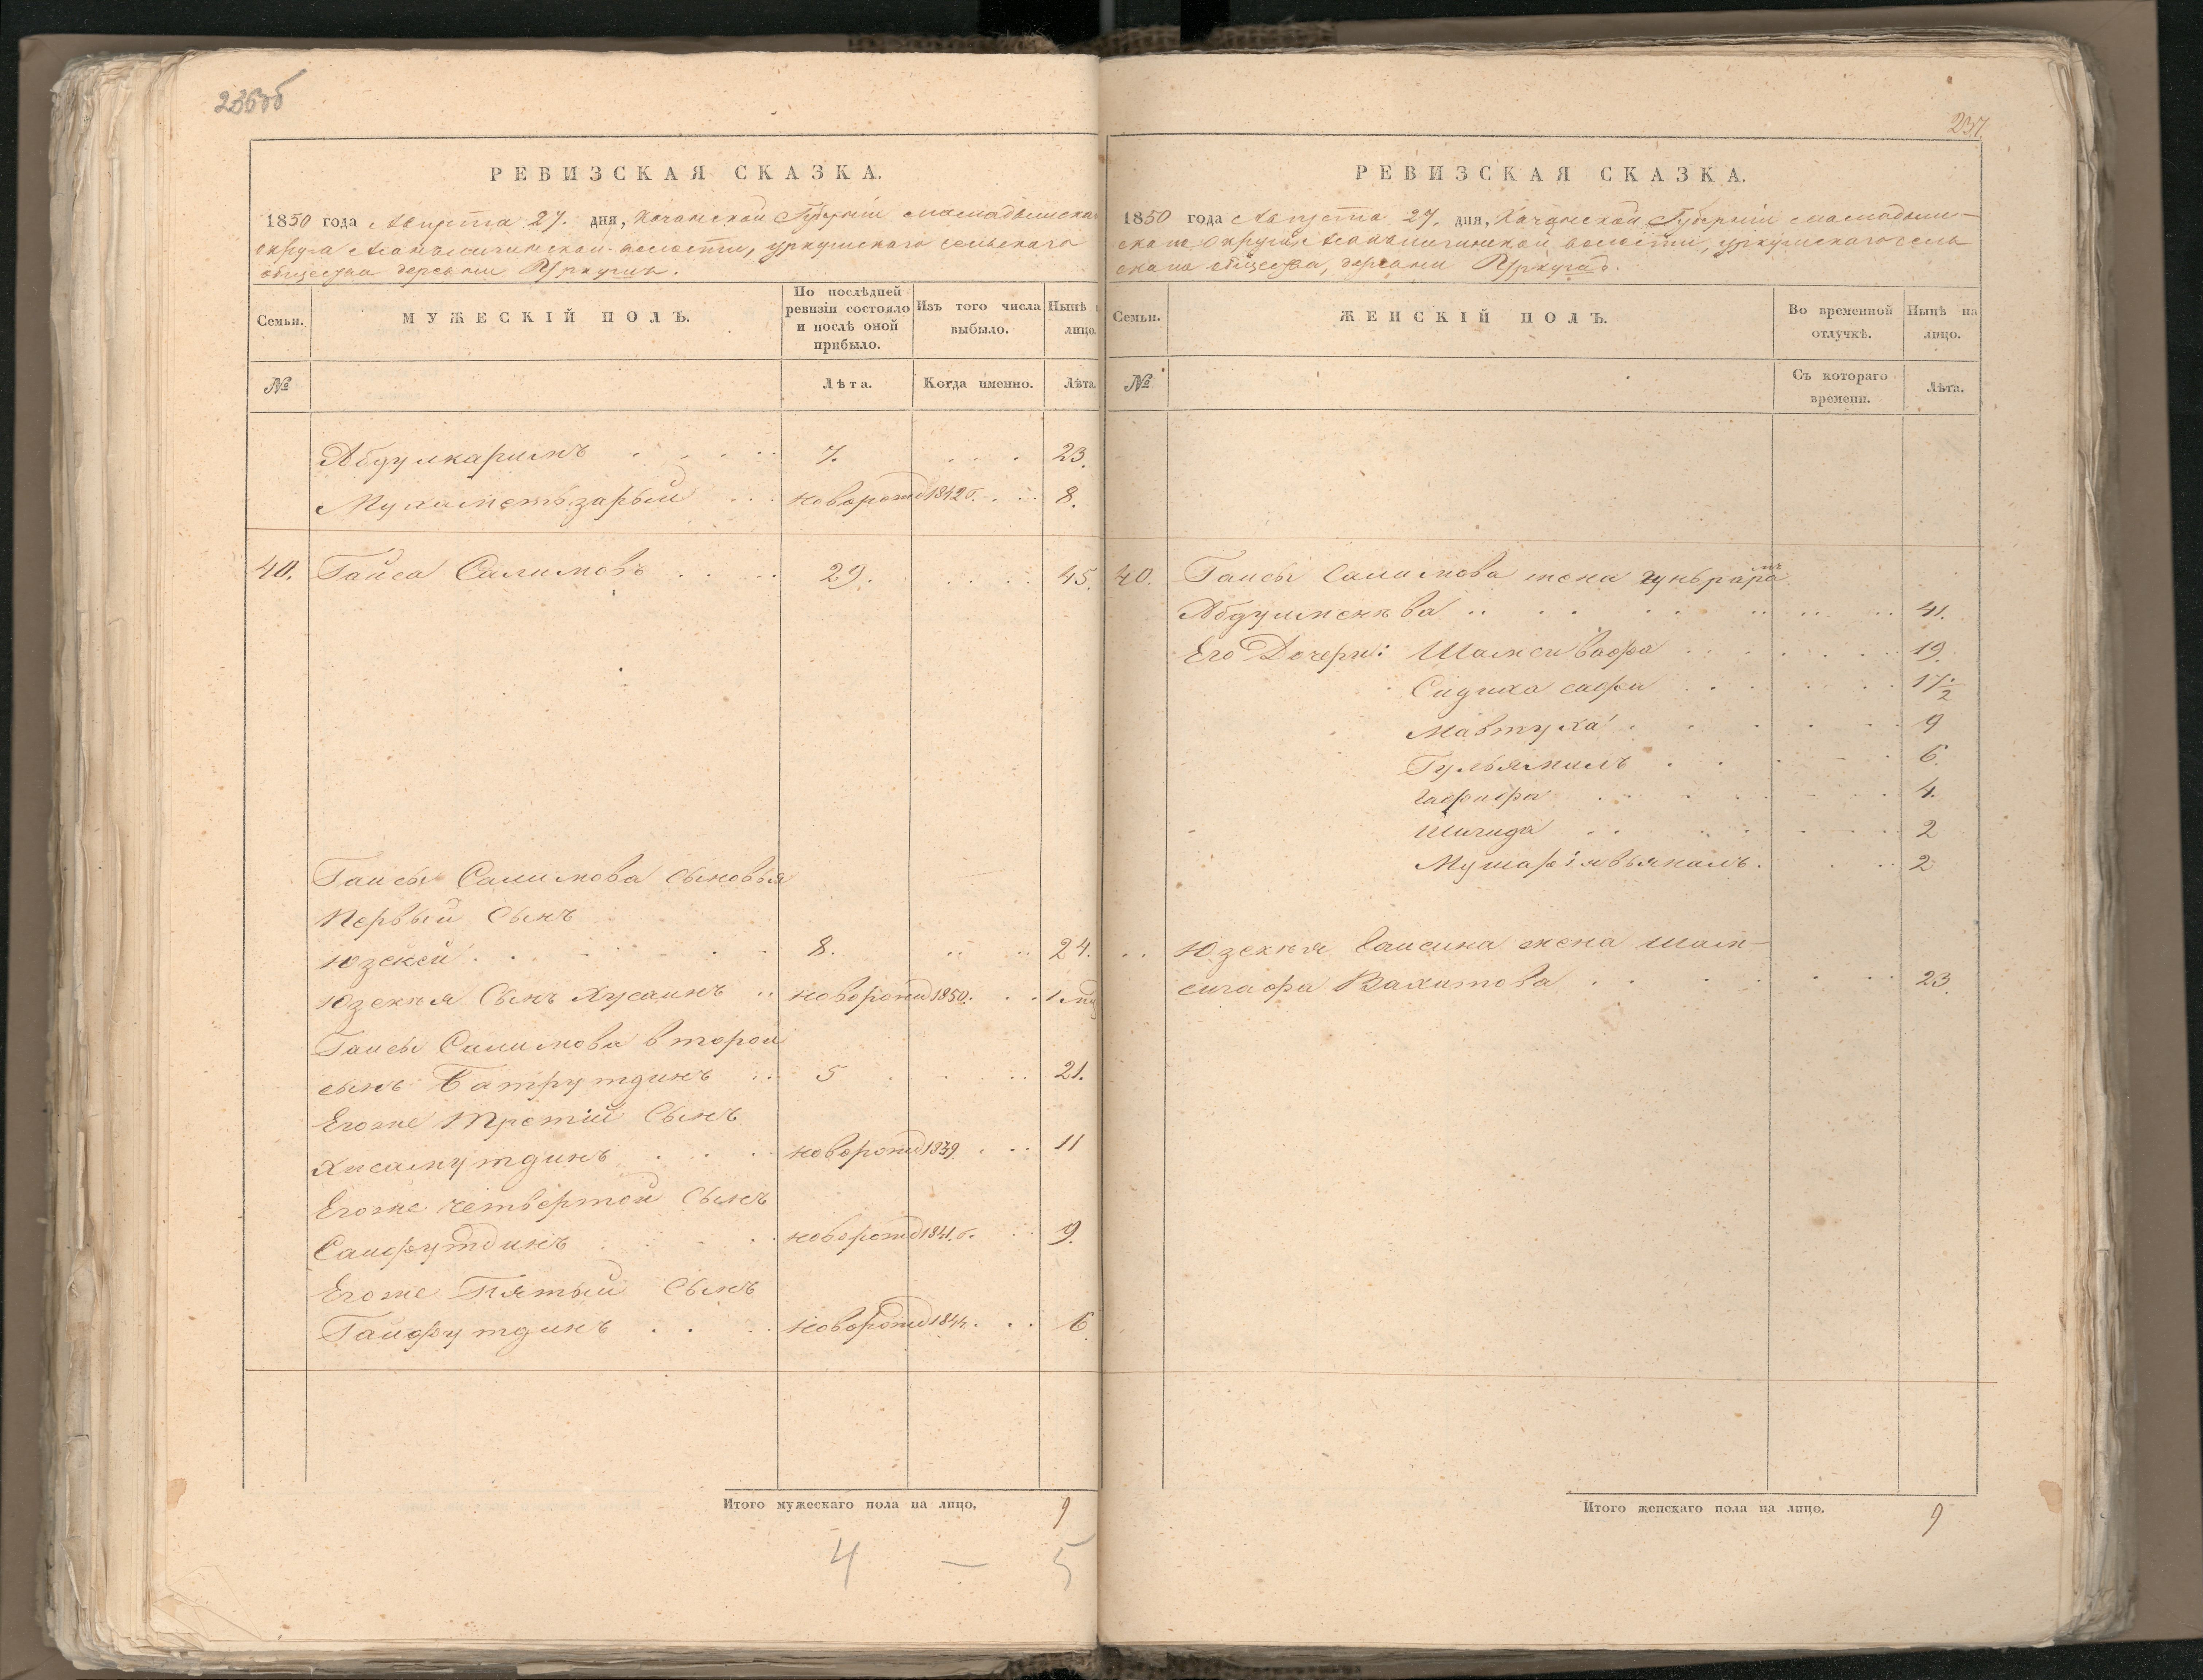 236об
РЕВИЗСКАЯ СКАЗКА.
1850 года Августа 27. дня, Казанской Губерніи Мамадышскаго
округа волости, Уркушскаго сельскаго
общества деревни Уркушъ.
Семьи.
МУЖЕСКІЙ ПОЛЪ.
По послѣдней ревизіи состояло и послѣ оной прибыло.
Изъ того числа выбыло.
Нынѣ лицо.
№
Лѣта.
Когда именно.
Лѣта
Абдулкаримъ 7. 23.
Мухаметьзарый новорожд 1842 г. 8.
40. Гайса Салимовъ 29. 45.
Гайсы Салимова сыновья
Первый сынъ
Юзекей 8. 24.
Юзекея сынъ Хусаинъ новорожд 1850. 1
Гайсы Салимова второй
сынъ Батрутдинъ 5 21.
Егоже Третій сынъ
Хисамутдинъ новорожд 1839. 11
Егоже четвертой сынъ
Сайфутдинъ новорожд 1841. г. 9.
Егоже Пятый сынъ
Гайфутдинъ новорожд 1844. 6
Итого мужескаго пола на лицо, 9
4 — 5
237.
РЕВИЗСКАЯ СКАЗКА.
1850 года Августа 27. дня, Казанской Губерніи Мамадыш-
скаго округа волости, Уркушскаго сель
скаго общества, деревни
Семьи.
ЖЕНСКІЙ ПОЛЪ.
Во временной отлучкѣ.
Нынѣ на лицо.
№
Съ котораго времени.
Лѣта.
40. Гайсы Салимова жена
41.
Его Дочери: Шамсивафа 19.
Сидиха 17 1/2
Мавтуха 9
Гульямалъ 6.
4.
2
2
Юзекея Гайсина жена Шам-
Вахитова 23.
Итого женскаго пола на лицо. 9